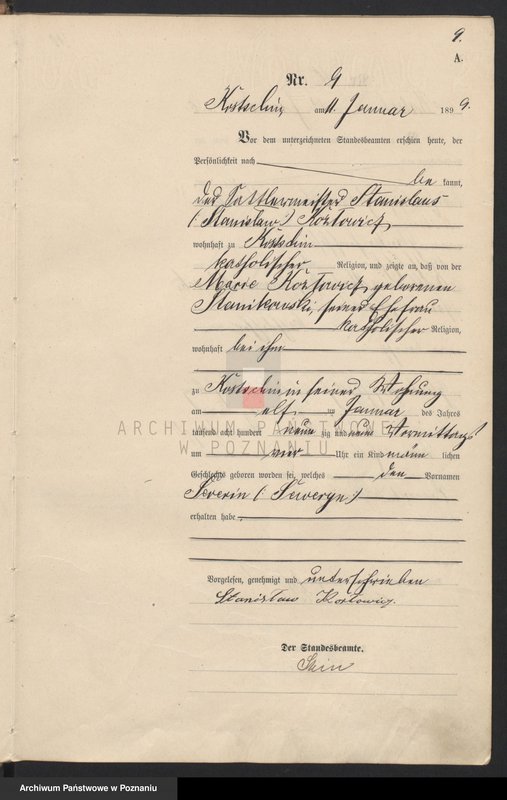 9.
A.
Nr. 9
Kostschin am 11. Januar 1899.
Vor dem unterzeichneten Standesbeamten erschien heute, der
Persönlichkeit nach
be kannt,
der Sattlermeister Stanislaus
(Stanislaw)
wohnhaft zu Kostschin
katholischer Religion, und zeigte an, daß von der
Marie geborenen
seiner Ehefrau
katholischer Religion,
wohnhaft bei ihm
zu Kostschin in seiner Wohnung
am elf ten Januar des Jahres
tausend acht hundert neun zig und neun Vormittags
um vier Uhr ein Kind männ lichen
Geschlechts geboren worden sei, welches den Vornamen
Severin (Seweryn)
erhalten habe.
Vorgelesen, genehmigt und unterschrieben
Stanisław
Der Standesbeamte.
ARCHIWUM PAŃSTWOWE
W POZNANIU
Archiwum Państwowe w Poznaniu